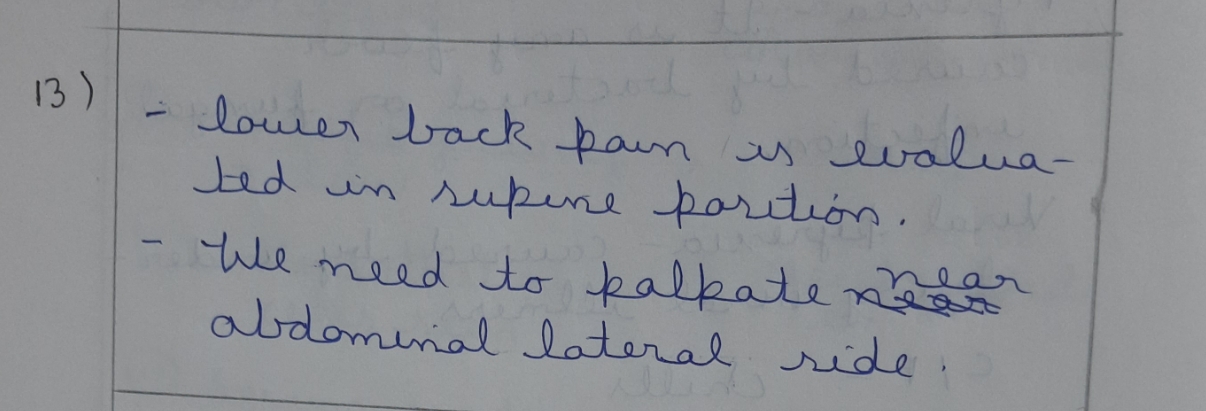 13)
- lower back pain is evalua-
ted in supine position.
- We need to palpate near
abdominal lateral side.